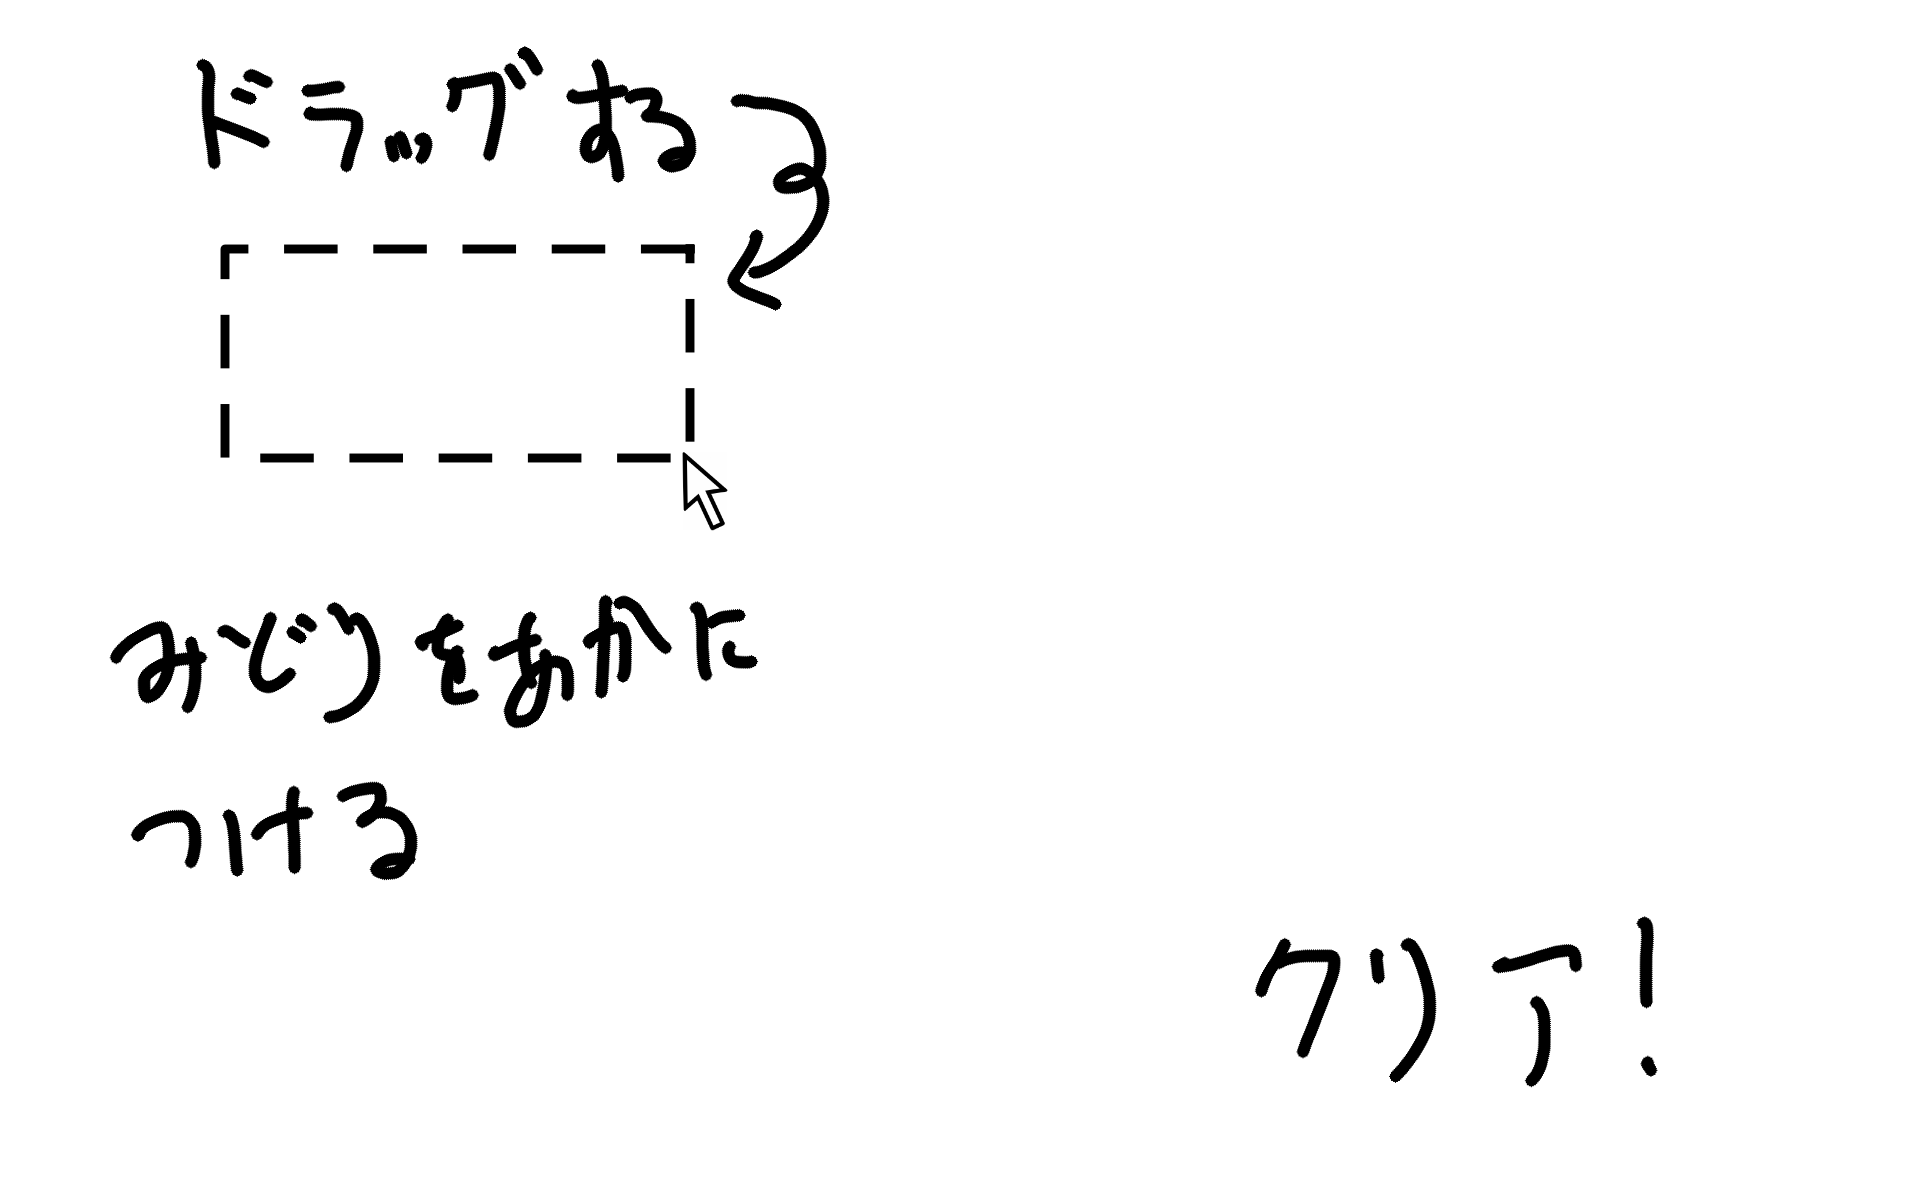 ドラッグする
みどりをあかに
つける
クリア!